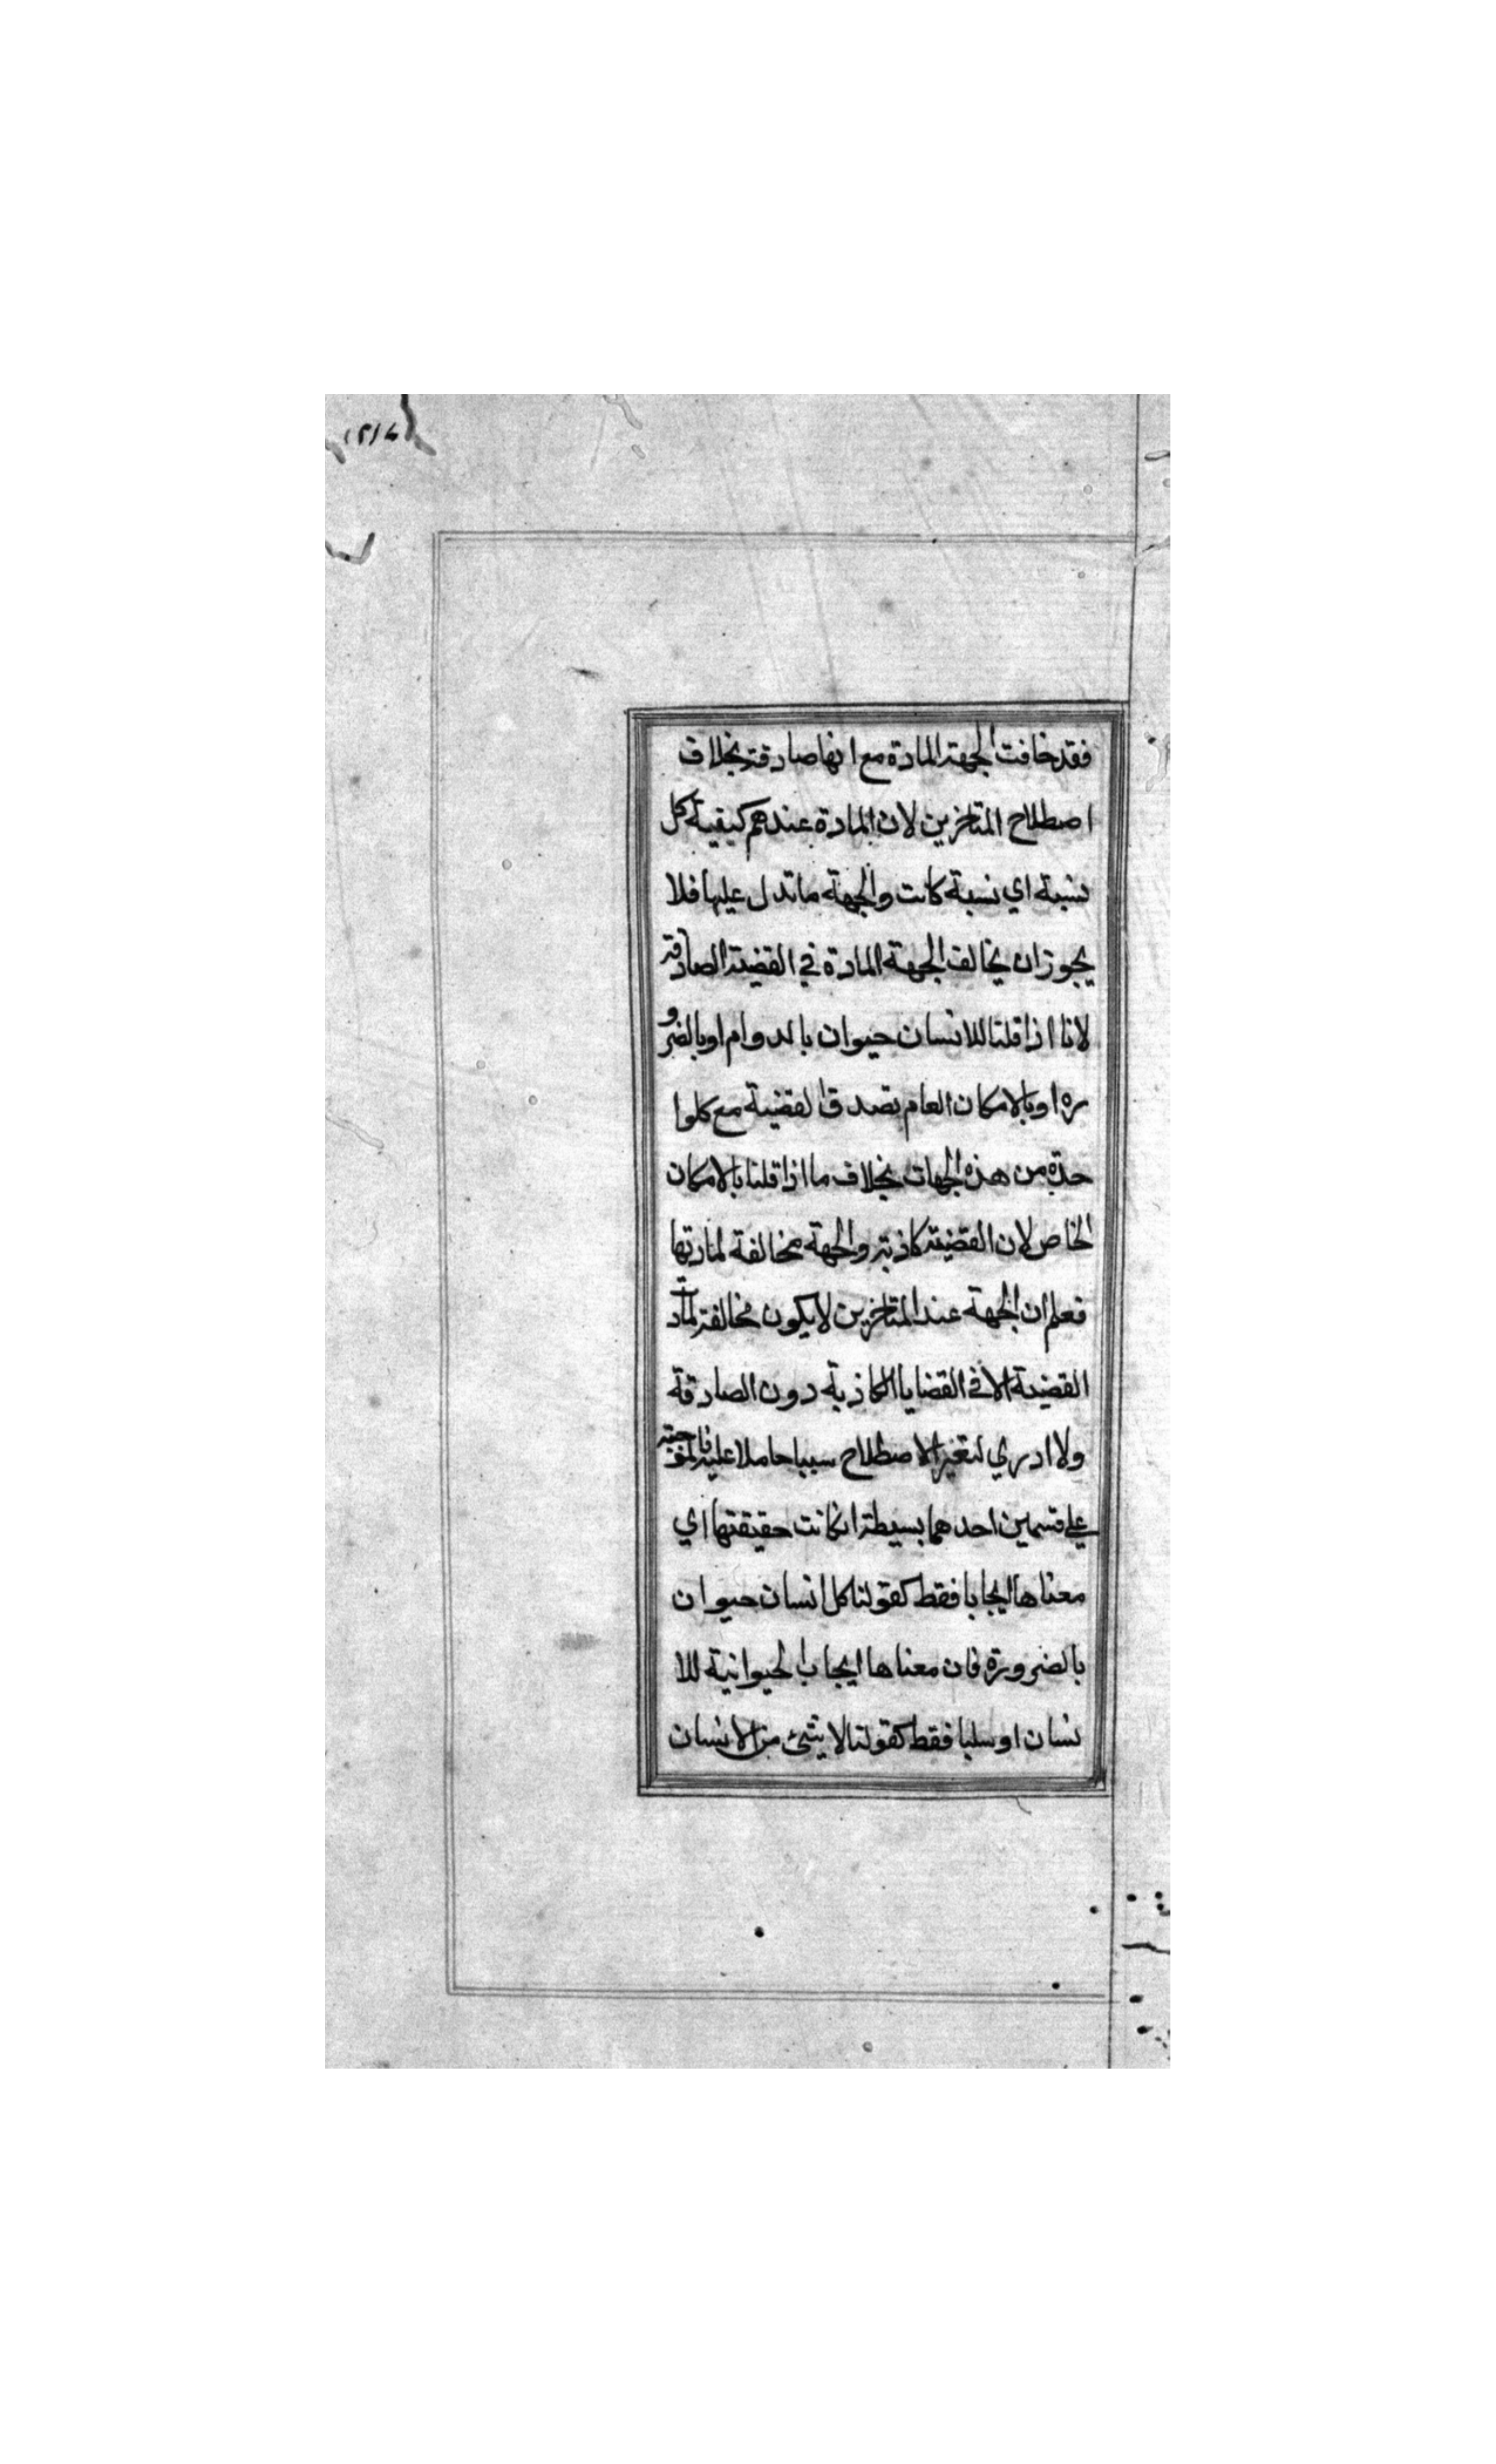 فقد خافت الجهة المادة مع انها صادقة بخلاف
اصطلاح المتاخرين لان المادة عندهم كيفية كل
نسبة اي نسبة كانت والجهة ما تدل عليها فلا
يجوز ان يخالف الجهة المادة في القضية الصادقة
لانا اذا قلنا للانسان حيوان بالدوام او بالضرو
ره او بالامكان العام تصدق القضية مع كلوا
حدة من هذه الجهات بخلاف ما اذا قلنا بالامكان
الخاص لان القضية كاذبة والجهة مخالفة لمادتها
فعلم ان الجهة عند المتاخرين لا يكون مخالفة لمادة
القضية الا في القضايا الكاذبة دون الصادقة
ولا ادري لتغير الاصطلاح سببا حاملا عليه
علي قسمين احدهما بسيطة انكانت حقيقتها اي
معناها ايجابا فقط كقولنا كل انسان حيوان
بالضرورة فان معناها ايجاب الحيوانية للا
نسان او سلبا فقط كقولنا لا شئ من الانسان